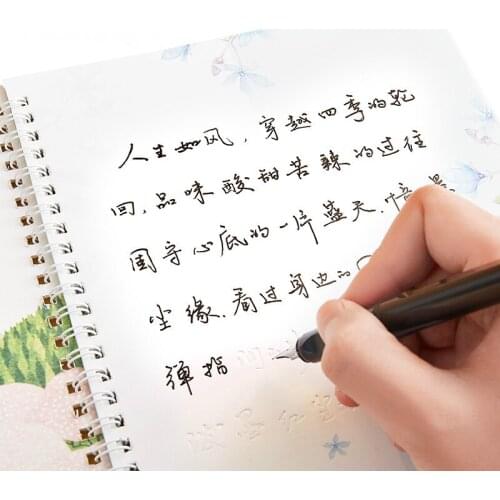 人生如风，穿越四季的轮
回，品味酸甜苦辣的过往
固守心底的一片蓝天.悟
尘缘.看过身边的
弹指